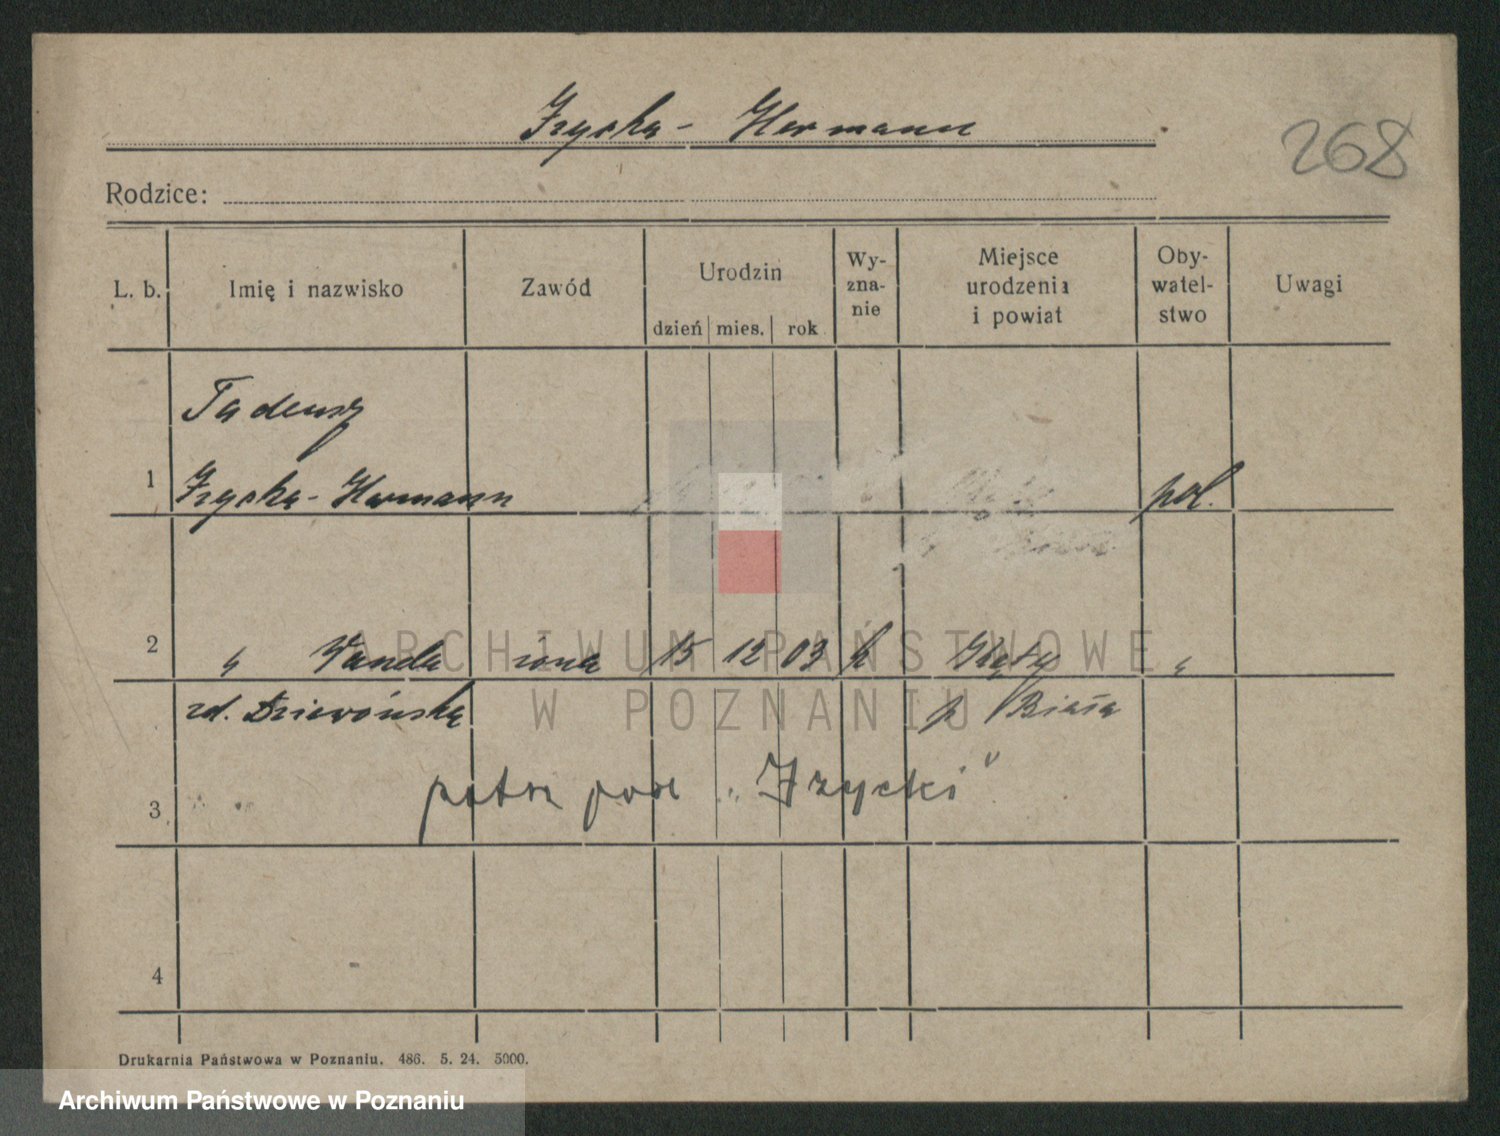 Izycka - Hermann
268
Rodzice:
L. b.
Imię i nazwisko
Zawód
Urodzin
dzień mies. rok
Wy-
zna-
nie
Miejsce
urodzenia
i powiat
Oby-
watel-
stwo
Uwagi
Tadeusz
1 Izycka - Hermann pol.
2 " Wanda żona 15 12 03 k "
zd. p Biała
3 patrz pod „Izycki"
4
ARCHIWUM PAŃSTWOWE
W POZNANIU
Drukarnia Państwowa w Poznaniu. 486. 5. 24. 5000.
Archiwum Państwowe w Poznaniu